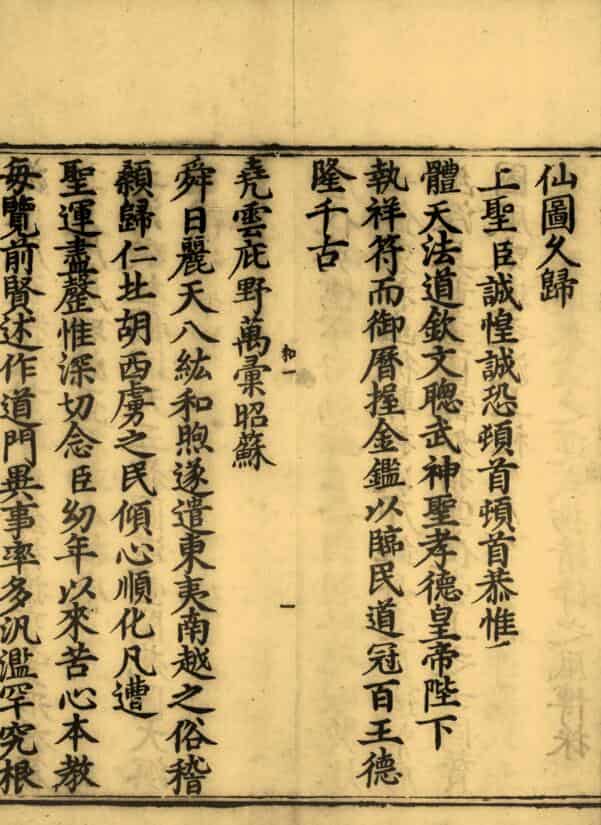 仙圖久歸
上聖臣誠惶誠恐頓首頓首恭惟
體天法道欽文聰武神聖孝德皇帝陛下
執祥符而御曆握金鑑以臨民道冠百王德
隆千古
和一
一
堯雲庇野萬彙昭蘇
舜日麗天八紘和煦遂遣東夷南越之俗稽
顙歸仁北胡西虜之民傾心順化凡遭
聖運盡罄惟深切念臣幼年以來苦心本教
每覽前賢述作道門異事率多汎濫罕究根